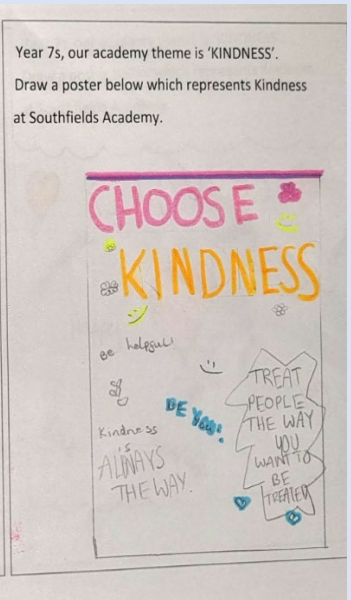 Year 7s, our academy theme is ‘KINDNESS’.
Draw a poster below which represents Kindness
at Southfields Academy.
CHOOSE
KINDNESS
Be helpful
BE YOU!
Kindness
is
ALWAYS
THE WAY.
TREAT
PEOPLE
THE WAY
YOU
WANT TO
BE
TREATED